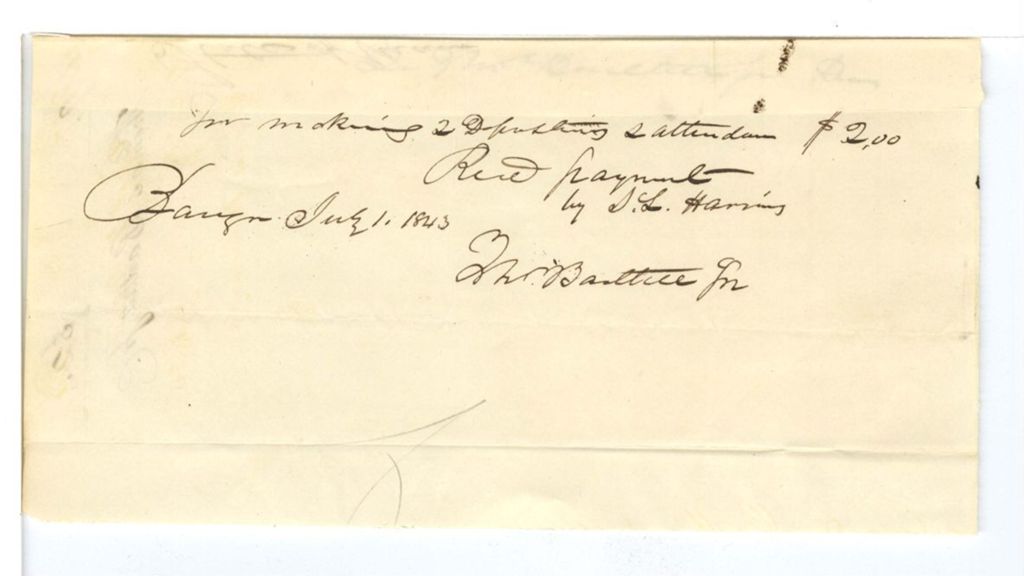 for making 2 Depositions & attendance $2,00
Recd payment
by S. L. Harris
Bangor July 1. 1843
Tho. Bartlett Jr